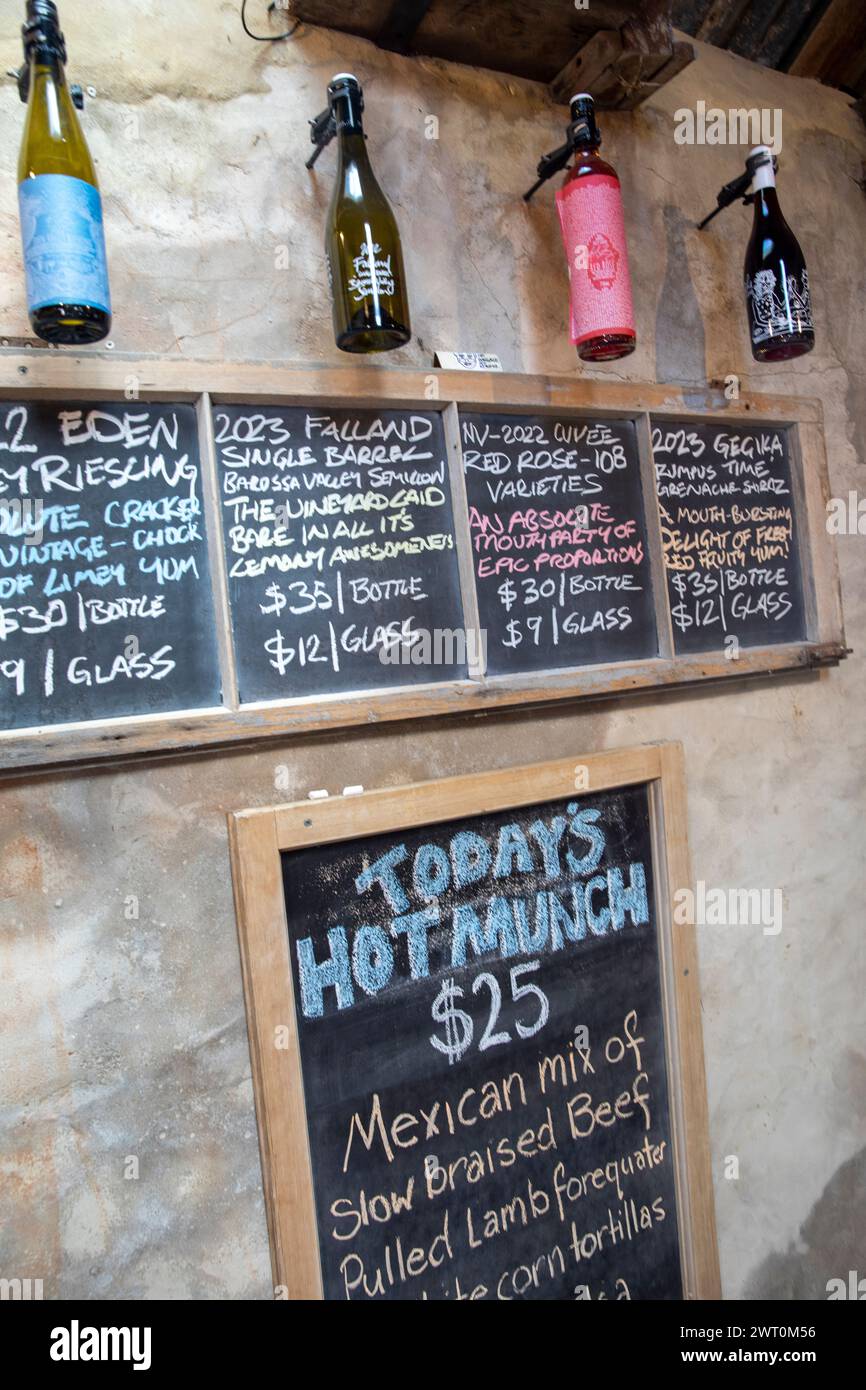 EDEN
RIESLING
CRACKER
VINTAGE - CHOCK
OF LIMEY YUM
$30 | BOTTLE
9 | GLASS
2023 FALLAND
SINGLE BARREL
BAROSSA VALLEY SEMILLON
THE VINEYARD LAID
BARE IN ALL IT'S
LEMONY AWESOMENESS
$35 | BOTTLE
$12 | GLASS
NV-2022 CUVÉE
RED ROSE - 108
VARIETIES
AN ABSOLUTE
MOUTHPARTY OF
EPIC PROPORTIONS
$30 | BOTTLE
$9 | GLASS
2023 GEGIKA
RUMPUS TIME'
GRENACHE SHIRAZ
A MOUTH-BURSTING
DELIGHT OF FRESH
RED FRUITY YUM!
$35 | BOTTLE
$12 | GLASS
TODAY'S
HOT MUNCH
$25
Mexican mix of
Slow braised Beef
Pulled Lamb forequater
corn tortillas
alamy
Image ID: 2WT0M56
www.alamy.com